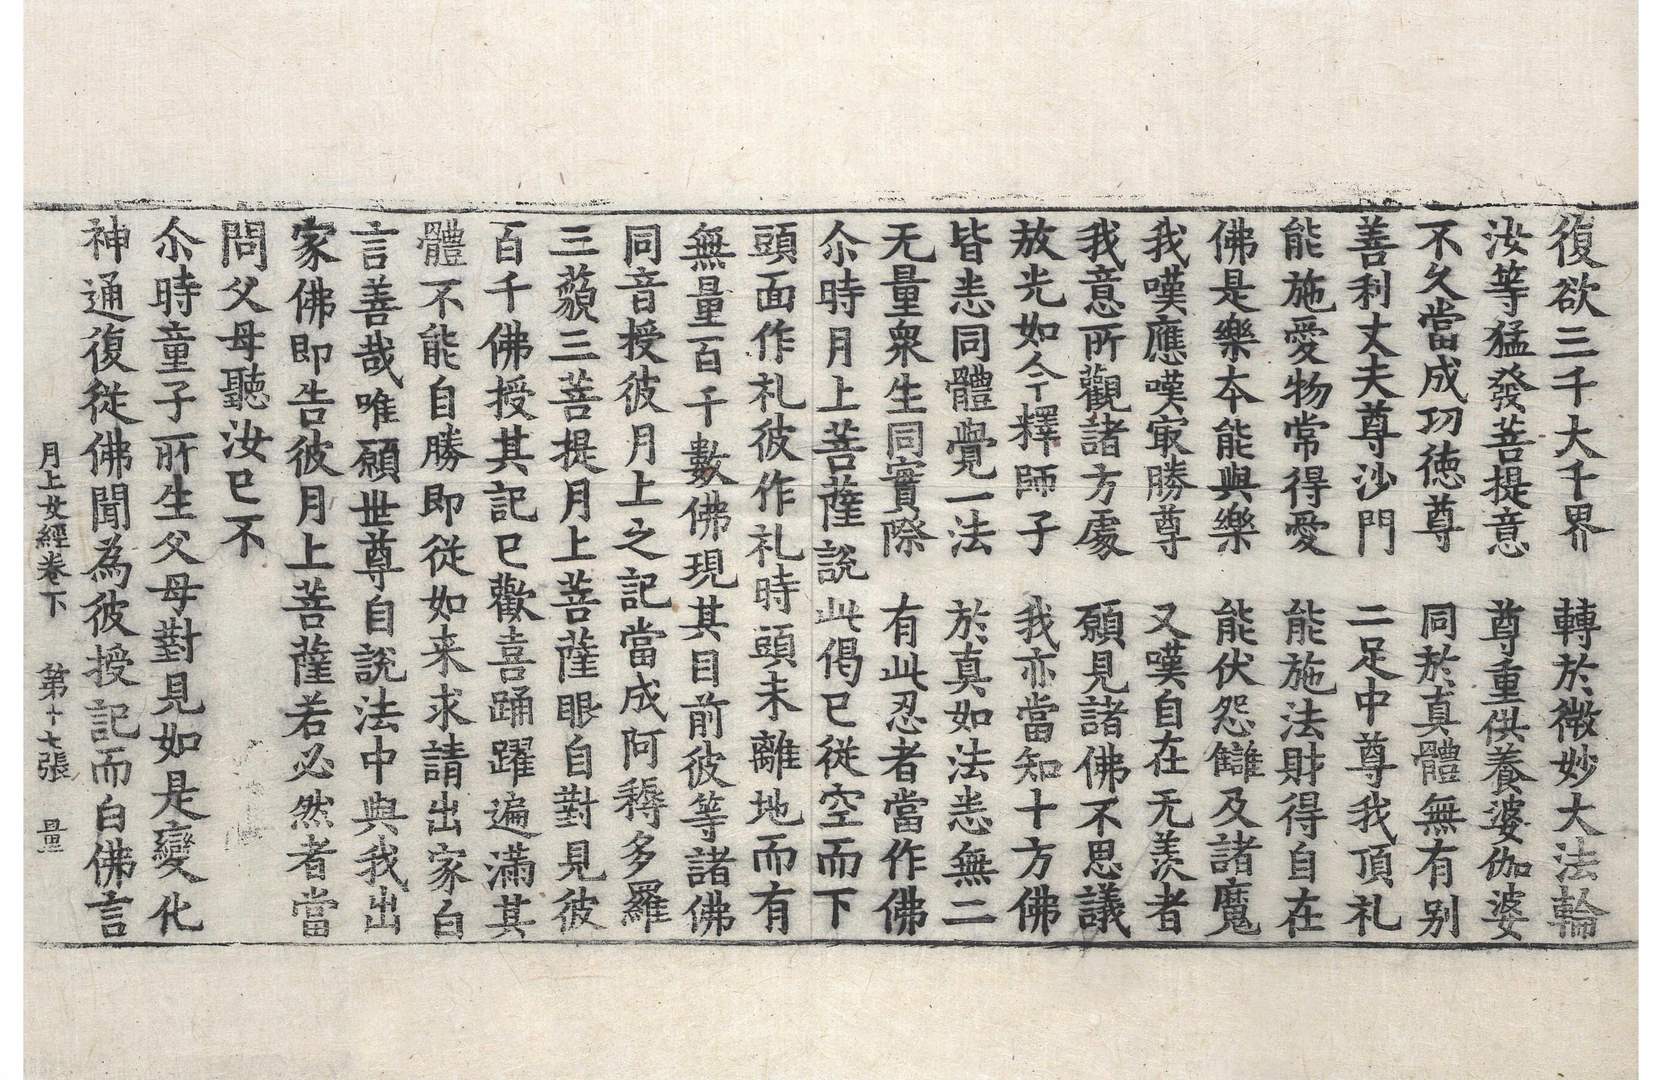 復欲三千大千界　轉於微妙大法輪
汝等猛發菩提意　尊重供養婆伽婆
不久當成功徳尊　同於真體無有别
善利丈夫尊沙門　二足中尊我頂礼
能施愛物常得愛　能施法財得自在
佛是樂夲能與樂　能伏怨讎及諸魔
我嘆應嘆㝡勝尊　又嘆自在无羨者
我意所觀諸方處　願見諸佛不思議
放光如今釋師子　我亦當知十方佛
皆悉同體覺一法　於真如法悉無二
无量衆生同實際　有此忍者當作佛
尒時月上菩薩說此偈已從空而下
頭面作礼彼作礼時頭未離地而有
無量百千數佛現其目前彼等諸佛
同音授彼月上之記當成阿耨多羅
三藐三菩提月上菩薩眼自對見彼
百千佛授其記已歡喜踊躍遍滿其
體不能自勝即從如来求請出家白
言善哉唯願世尊自說法中與我出
家佛即告彼月上菩薩若必然者當
問父母聽汝已不
尒時童子所生父母對見如是變化
神通復從佛聞為彼授記而白佛言
月上女經卷下　第十七張　量